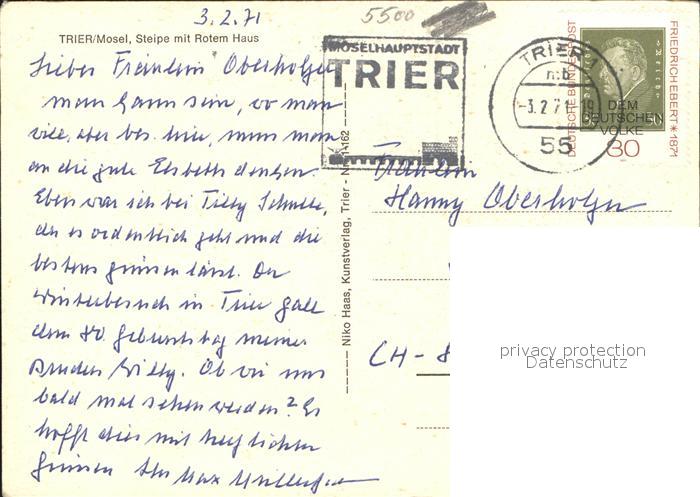 3.2.71
5500
TRIER/Mosel, Steipe mit Rotem Haus
Liebes Fräulein Oberholzer
man kann sein, wo man
will, aber bei hier, muss man
an die gute Elsbeth denken
Eben war ich bei Tilly Schulte,
der es ordentlich geht und die
bestens grüssen lässt. Der
Winterbesuch in Trier galt
dem 80. Geburtstag meines
Bruders Willy. Ob wir uns
bald mal sehen werden? Es
hofft dies mit herzlichen
Grüssen Ihr Max
Niko Haas, Kunstverlag, Trier - Nr. 14162
MOSELHAUPTSTADT
TRIER
TRIER 1
mb
-3.2.71-19
55
DEUTSCHE BUNDESPOST
FRIEDRICH EBERT * 1871
DEM
DEUTSCHEN
VOLKE
30
Fräulein
Hanny Oberholzer
CH - 8
privacy protection
Datenschutz